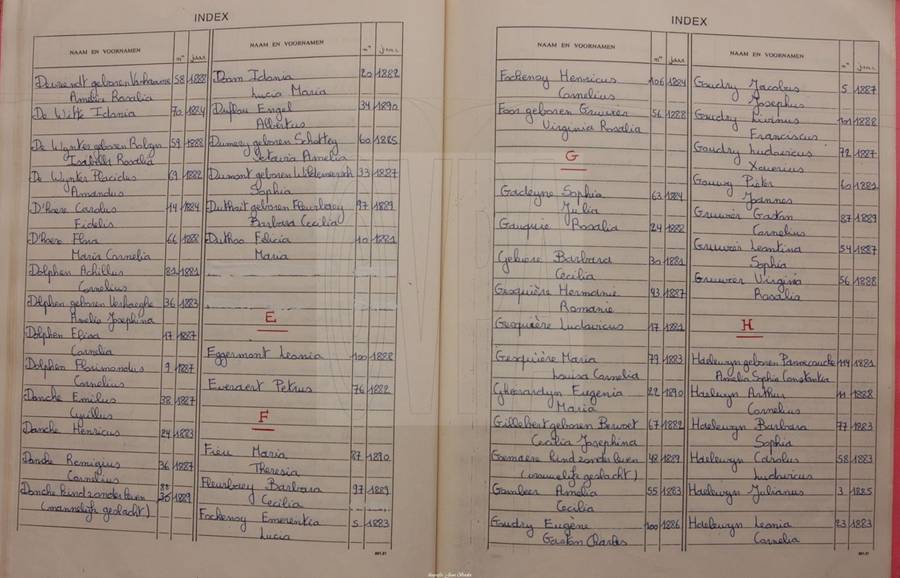 INDEX
NAAM EN VOORNAMEN n° jaar
Devriendt geboren Verhaeverne 58 1888
Amelia Rosalia
De Witte Idonia 70 1884
De Wynter geboren Robyn 59 1888
Isabella Rosalia
De Wynter Placidus 69 1882
Amandus
D'hoere Carolus 14 1884
Fidelis
D'hoere Elisa 66 1888
Maria Cornelia
Dolphen Achillus 82 1881
Cornelius
Dolphen geboren Verhaeghe 36 1883
Amelie Josephina
Dolphen Elisa 17 1887
Cornelia
Dolphin Florimondus 9 1887
Cornelius
Donche Emilus 38 1887
Cyrillus
Donche Henricus 24 1883
Donche Remigius 36 1887
Cornelius
Donche kind zonder leven 20 1889
(mannelijk geslacht)
NAAM EN VOORNAMEN n° jaar
Doom Idonia 20 1882
Lucia Maria
Duflou Engel 34 1890
Albertus
Dumery geboren Schottey 60 1885
Octavia Amelia
Dumont geboren 33 1887
Sophia
Duthoit geboren Fleurbaey 97 1889
Barbara Cecilia
Duthoo Felicia 10 1881
Maria
E
Eggermont Leonia 100 1888
Everaert Petrus 76 1882
F
Fieu Maria 87 1890
Theresia
Fleurbaey Barbara 97 1889
Cecilia
Fockenoy Emerentia 5 1883
Lucia
INDEX
NAAM EN VOORNAMEN n° jaar
Fockenoy Henricus 106 1884
Cornelius
Foor geboren Gruwier 56 1888
Virginia Rosalia
G
Gadeyne Sophia 63 1884
Julia
Gauquie Rosalia 24 1882
Geluere Barbara 30 1881
Cecilia
Gesquière Hermanie 43 1887
Romanie
Gesquière Ludovicus 17 1881
Gesquière Maria 79 1883
Louisa Cornelia
Gheerardyn Eugenia 22 1890
Maria
Gillebert geboren Beuset 67 1882
Cecilia Josephina
Goemaere kind zonder leven 48 1889
(vrouwelijk geslacht)
Gombeer Amelia 55 1883
Cecilia
Goudry Eugène 100 1886
Gaston Charles
NAAM EN VOORNAMEN n° jaar
Goudry Jacobus 5 1887
Josephus
Goudry Livinus 101 1888
Franciscus
Goudry Ludovicus 72 1887
Xaverius
Gouwy Pieter 60 1882
Joannes
Gruwier Gaston 87 1889
Cornelius
Gruwier Leontina 54 1887
Sophia
Gruwier Virginia 56 1888
Rosalia
H
Haelewyn geboren Panacoucke 114 1881
Amelia Sophia Constantia
Haelewyn Arthur 11 1888
Cornelius
Haelewyn Barbara 77 1883
Sophia
Haelewyn Carolus 58 1883
Ludovicus
Haelewyn Julianus 3 1885
Haelewyn Leonia 23 1883
Cornelia